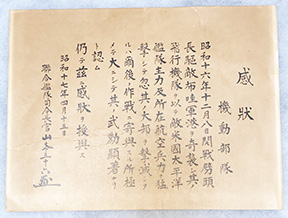 感狀
機動部隊
昭和十六年十二月八日開戰劈頭
長驅敵布哇軍港ヲ奇襲シ其ノ
飛行機隊ヲ以テ敵米國太平洋
艦隊主力及所在航空兵力ヲ猛
擊シテ忽チ其ノ大部ヲ擊滅シタ
ルハ爾後ノ作戰ニ寄與スル所極
メテ大ニシテ其ノ武勳顯著ナリ
ト認ム
仍テ茲ニ感狀ヲ授與ス
昭和十七年四月十五日
聯合艦隊司令長官山本五十六